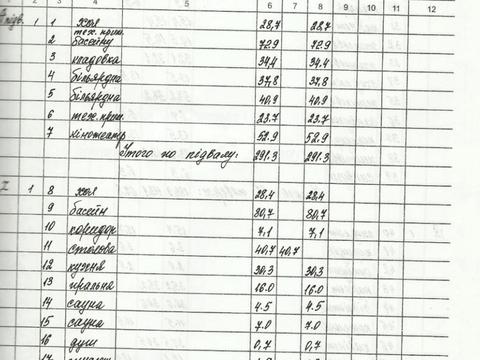 2 3 4 5 6 7 8 9 10 11 12
підв. 1 1 хол 28,7 28,7
тех. прим.
2 басейну 72.9 72.9
3 кладовка 34.4 34.4
4 більярдна 37,8 37,8
5 більярдна 40,9 40,9
6 тех. прим. 23.7 23.7
7 кінотеатр 52.9 52.9
Итого по підвалу: 291.3 291.3
I 1 8 хол 28.4 28.4
9 басейн 80,7 80,7
10 коридор 7,1 7,1
11 столова 40,7 40,7
12 кухня 30,3 30,3
13 пральна 16.0 16.0
14 сауна 4.5 4.5
15 сауна 7.0 7.0
16 душ 0,7 0,7
17